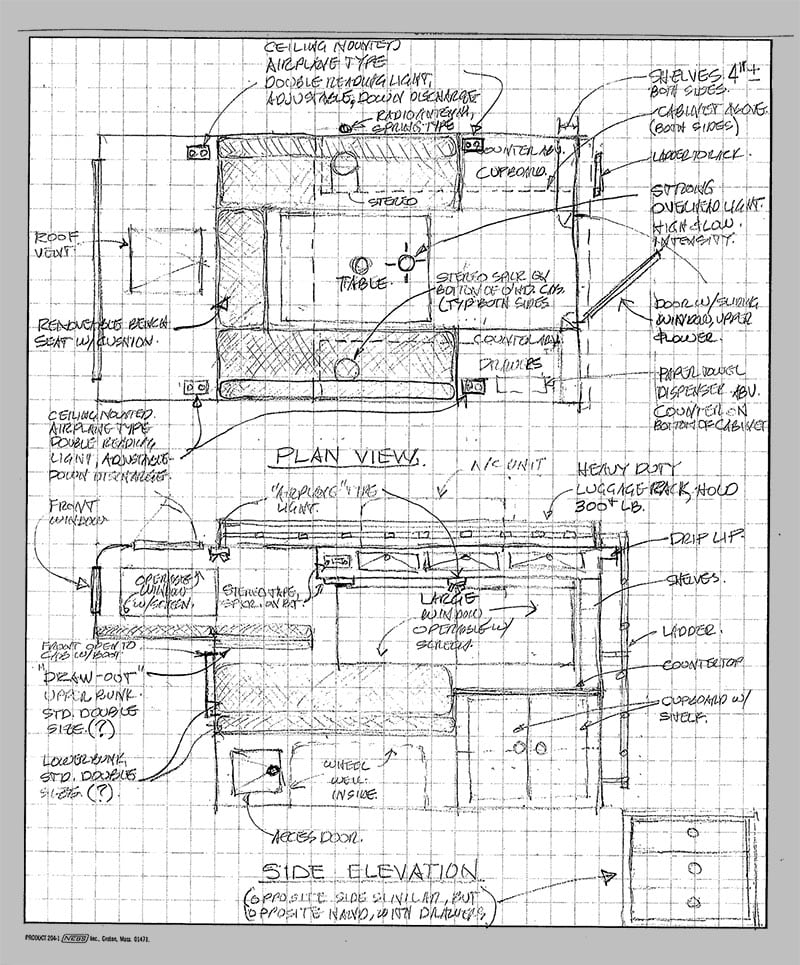 CEILING MOUNTED
AIRPLANE TYPE
DOUBLE READING LIGHT,
ADJUSTABLE, DOWN DISCHARGE
RADIO ANTENNA,
SPRING TYPE
SHELVES 4"±
BOTH SIDES.
CABINET ABOVE
(BOTH SIDES)
LADDER TO RACK.
COUNTER ABV.
CUPBOARD.
STEREO
STRONG
OVERHEAD LIGHT.
HIGH & LOW
INTENSITY.
ROOF
VENT.
TABLE.
STEREO SPKR ON
BOTTOM OF CAB.
(TYP. BOTH SIDES
REMOVEABLE BENCH
SEAT W/ CUSHION.
DOOR W/ SLIDING
WINDOW, UPPER
& LOWER.
COUNTER ABV.
DRAWERS
PAPER TOWEL
DISPENSER ABV.
COUNTER ON
BOTTOM OF CABINET
CEILING MOUNTED
AIRPLANE TYPE
DOUBLE READING
LIGHT, ADJUSTABLE
DOWN DISCHARGE
PLAN VIEW.
A/C UNIT
HEAVY DUTY
LUGGAGE RACK, HOLD
300+ LB.
"AIRPLANE" TYPE
LIGHT.
FRONT
WINDOW
DRIP LIP.
OPERABLE
WINDOW
W/ SCREEN.
STEREO TAPE,
SPKR. ON BOT.
SHELVES.
LARGE
WINDOW
OPERABLE W/
SCREEN.
LADDER.
FRONT OPEN TO
CAB W/ BOOT
"DRAW-OUT"
UPPER BUNK.
STD. DOUBLE
SIZE. (?)
COUNTERTOP
CUPBOARD W/
SHELF.
LOWER BUNK
STD. DOUBLE
SIZE. (?)
WHEEL
WELL
INSIDE.
ACCESS DOOR.
SIDE ELEVATION
(OPPOSITE SIDE SIMILAR, BUT
OPPOSITE HAND, WITH DRAWERS)
PRODUCT 204-1 NEBS Inc., Groton, Mass. 01471.